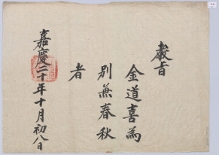 教旨
金道喜爲
別兼春秋
者
嘉慶二十年十月初八日